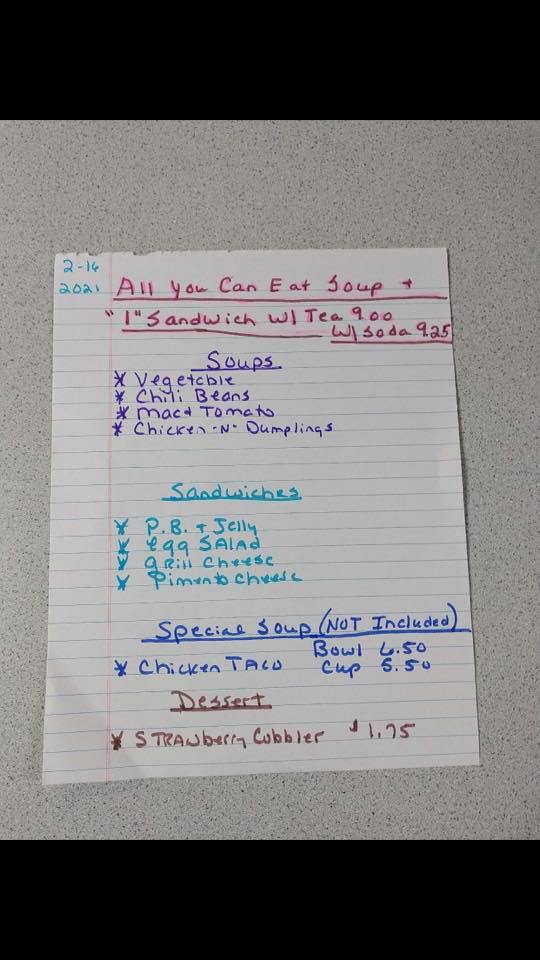 2-16
2021
All You Can Eat Soup +
"1" Sandwich W/ Tea 9.00
W/ Soda 9.25
Soups
* Vegetable
* Chili Beans
* Mac + Tomato
* Chicken-N-Dumplings
Sandwiches
* P.B. + Jelly
* Egg Salad
* Grill Cheese
* Pimento Cheese
Special Soup (NOT Included)
Bowl 6.50
* Chicken Taco Cup 5.50
Dessert
* Strawberry Cobbler $1.75